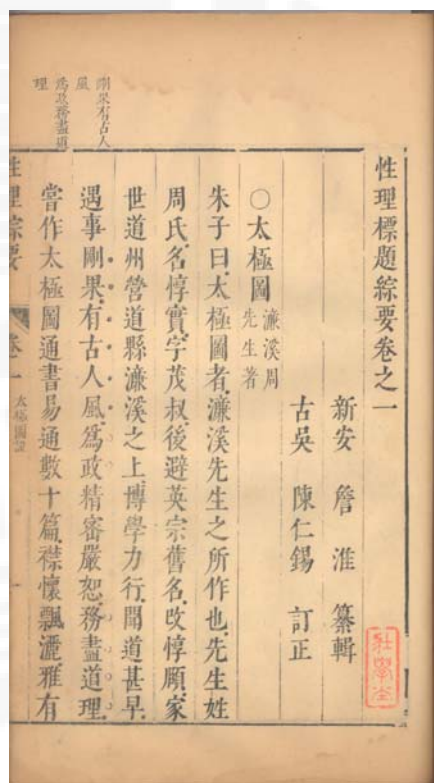 性理標題綜要卷之一
新安 詹淮 纂輯
古吳 陳仁錫 訂正
○太極圖 濂溪周先生著
朱子曰太極圖者濂溪先生之所作也先生姓
周氏名惇實字茂叔後避英宗舊名改惇頤家
世道州營道縣濂溪之上博學力行聞道甚早
遇事剛果有古人風為政精密嚴恕務盡道理
嘗作太極圖通書易通數十篇襟懷飄灑雅有
剛果有古人
風
為政務盡道
理
性理綜要
卷一
太極圖說
一